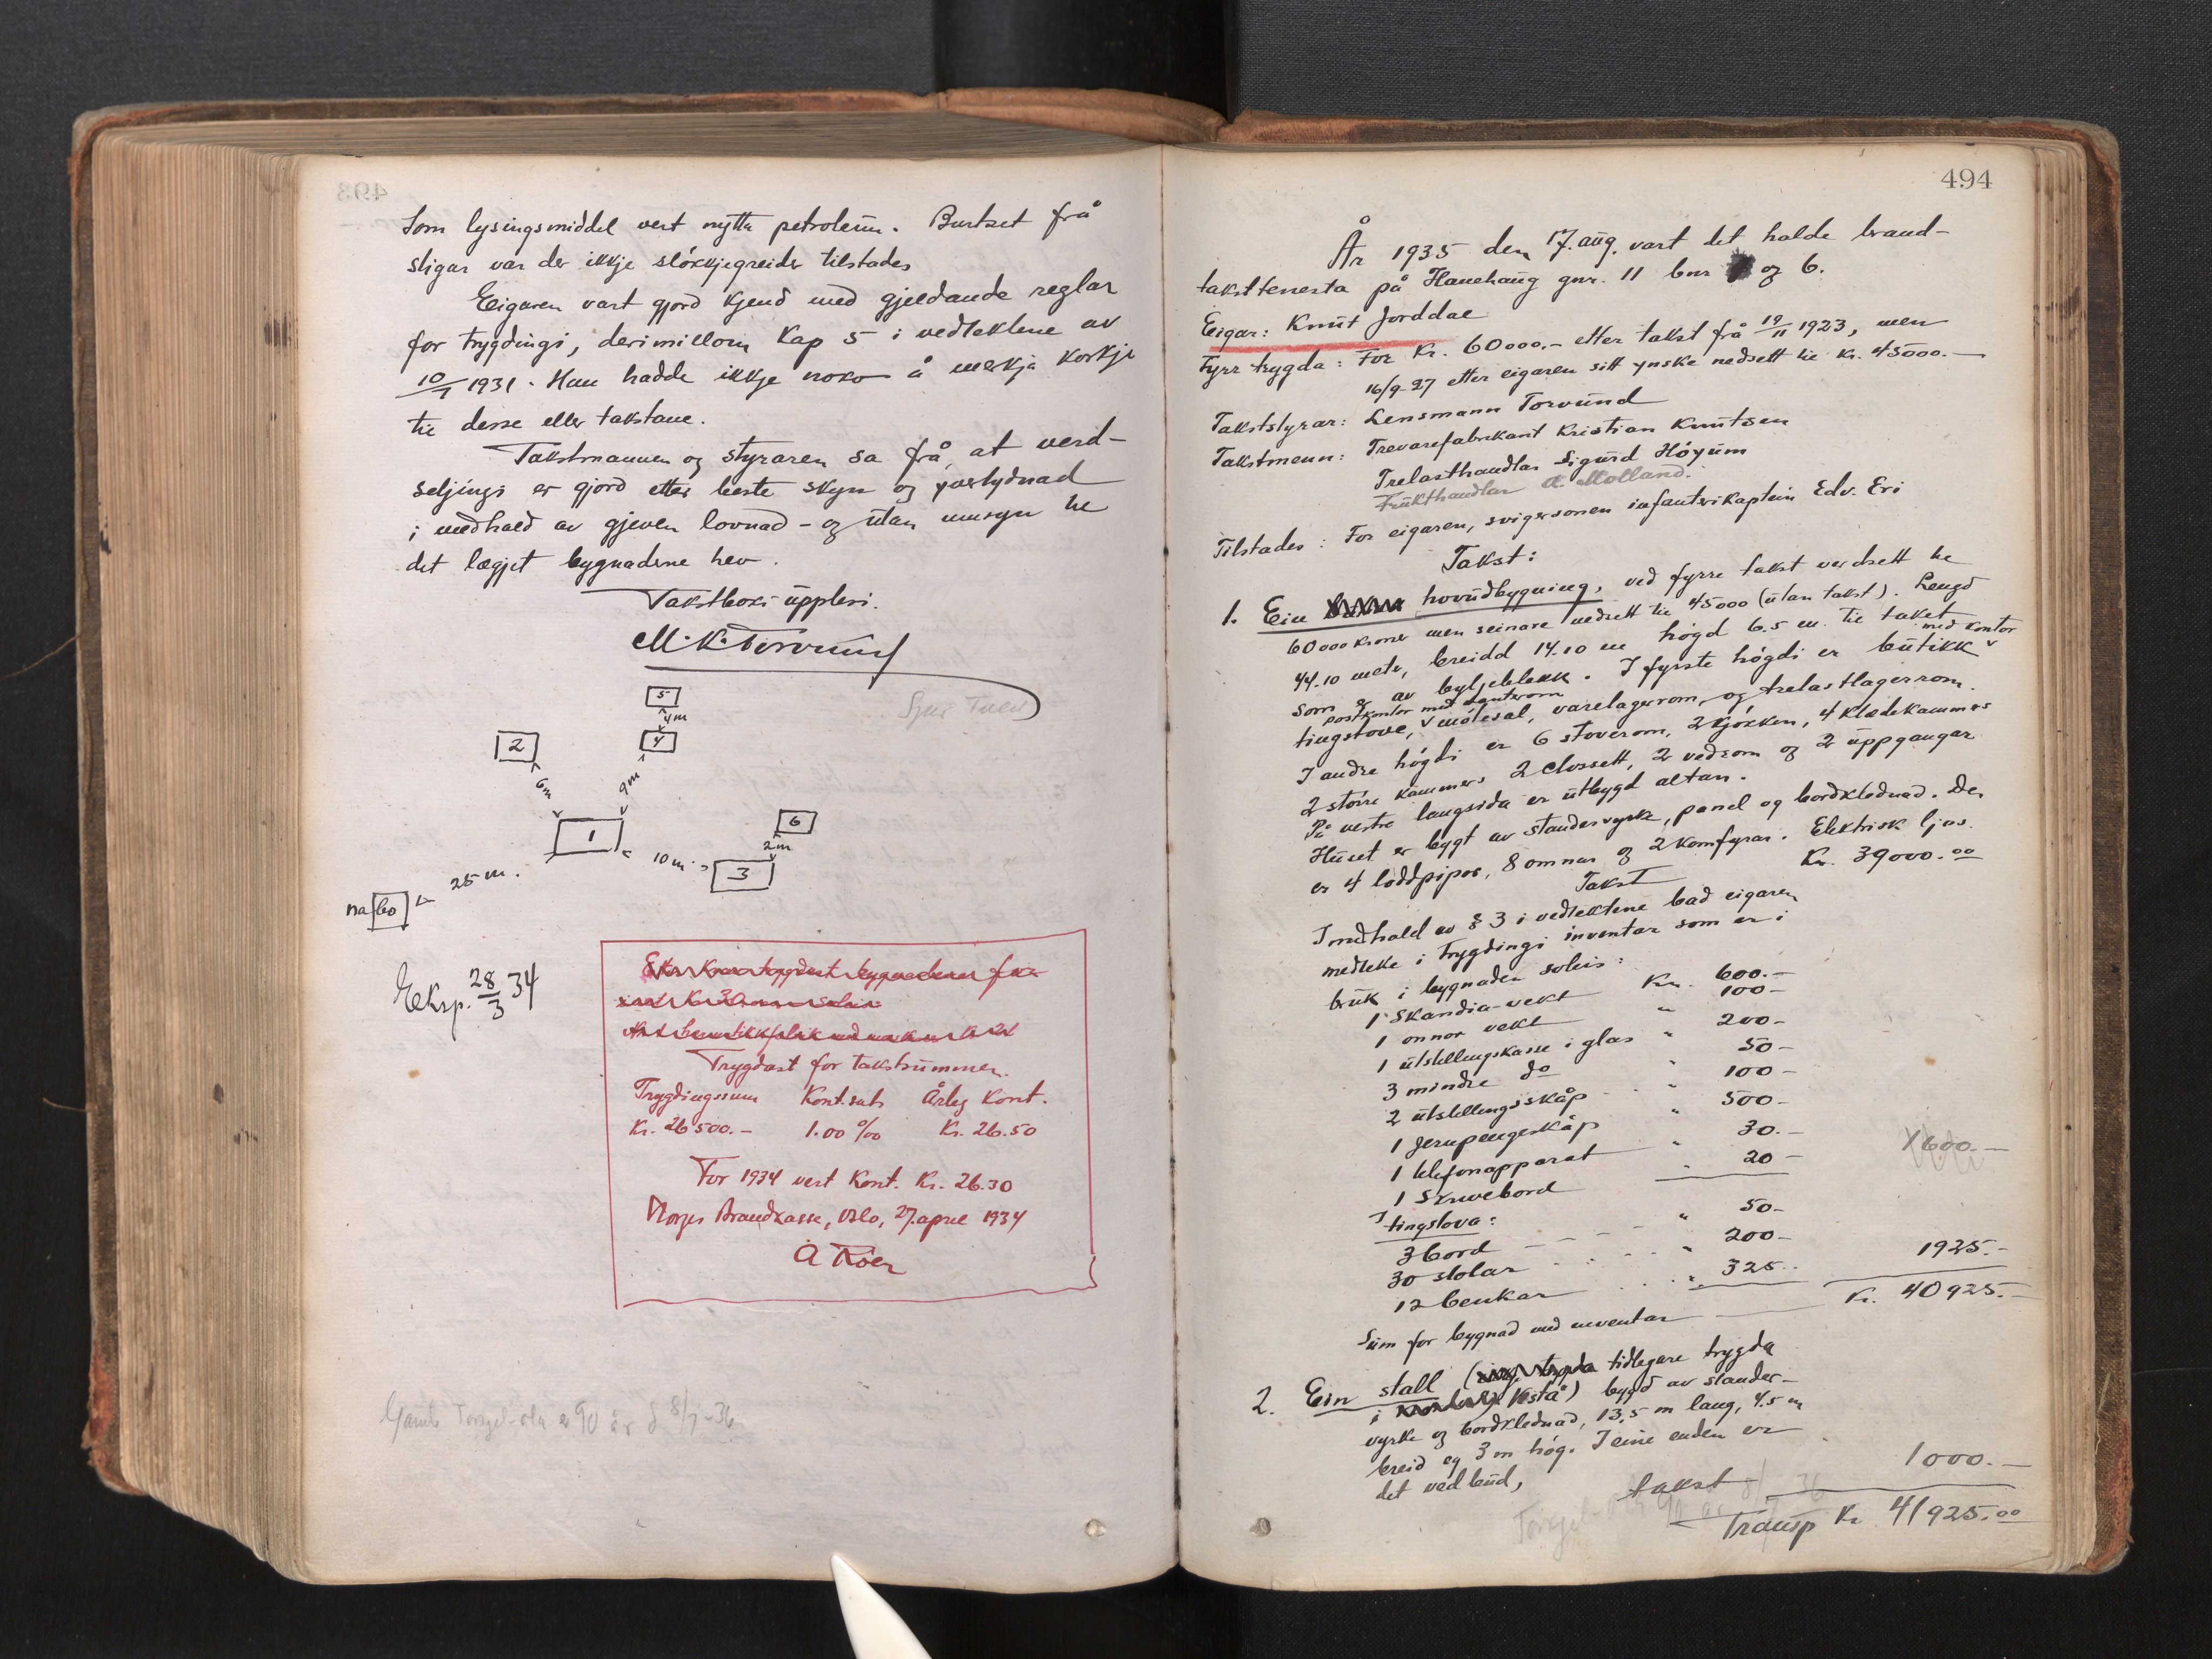 493
Som lysingsmiddel vert nytta petroleum. Burtset frå
stigar var der ikkje sløkkjegreider tilstades
Eigaren vart gjord kjend med gjeldande reglar
for trygdingi, derimillom Kap 5 i vedtektene av
10/7 1931. Han hadde ikkje noko å merkja korkje
til desse eller takstane.
Takstmannen og styraren sa frå, at verd-
seljingi er gjord etter beste skyn og yvertydnad
i medhald av gjeven lovnad - og utan umsyn til
det lægjet bygnaderne hev.
Takstboki upplesi.
M. K. Torvund
5
4m
2
4
6m
9m
1
6
2m
10m
3
25 m.
nabo
Eksp. 28/3 34
Trygdast for takstsummen.
Trygdingssum Kont.sats Årleg Kont.
Kr. 26 500.- 1.00 ‰ Kr. 26.50
For 1934 vert Kont. Kr. 26.30
Norges Brandkasse, Oslo, 27. april 1934
494
År 1935 den 17. aug. vart det halde brand-
taksttenesta på Hauehaug gnr. 11 bnr og 6.
Eigar: Knut Jorddal
Fyrr trygda: For Kr. 60000.- etter takst frå 19/11 1923, men
16/9-27 etter eigaren sitt ynske nedsett til kr. 45000.-
Takststyrar: Lensmann Torvund
Takstmenn: Trevarefabrikant Kristian Knutsen
Trelasthandlar Sigurd Höyum
Frukthandlar A. Molland.
Tilstades: For eigaren, svigersonen infanterikaptein Edv. Eri
Takst:
1. Ein hovudbygning, ved fyrre takst verdsett til
60000 kroner men seinare nedsett til 45000 (utan takst). Lengd
44.10 meter, breidd 14.10 m høgd 6.5 m. til taket
som er av bylgjeblekk. I fyrste høgdi er butikk med kontor
tingstove, postkontor med venterom møtesal, varelagerrom, og trelastlagerrom.
I andre høgdi er 6 stoverom, 2 kjøkken, 4 klædekammers
2 större kammers 2 closett, 2 vedrom og 2 uppgangar
På vestre langsida er utbygd altan.
Huset er bygt av standervyrke, panel og bordklednad. Der
er 4 loddpipor, 8 omnar og 2 komfyrar. Elektrisk ljos.
Takst Kr. 39000.00
I medhald av § 3 i vedtektene bad eigaren
medteke i trygdingi inventar som er i
bruk i bygnaden soleis:
1 Skandia-vekt Kr. 600.-
1 onnor vekt " 100-
1 utstellingskasse i glas " 200-
3 mindre do " 50-
2 utstellingsskåp " 100-
1 Jernpengeskåp " 500-
1 telefonapparat " 30.-
1 Skrivebord " 20-
1600.-
I tingstova:
3 bord " 50-
30 stolar " 200-
12 benkar " 325.- 1925.-
Sum for bygnad med inventar Kr. 40925.-
2. Ein stall ( tidlegare trygda
i ) bygd av stander-
vyrke og bordklednad, 13.5 m lang, 4.5 m
breid og 3 m høg. I eine enden er
det vedbud,
takst 1000.-
Transp Kr 41925.00